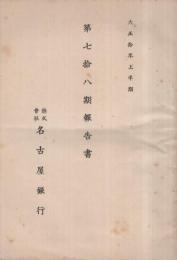 大正拾年上半期
第七拾八期報告書
株式會社 名古屋銀行